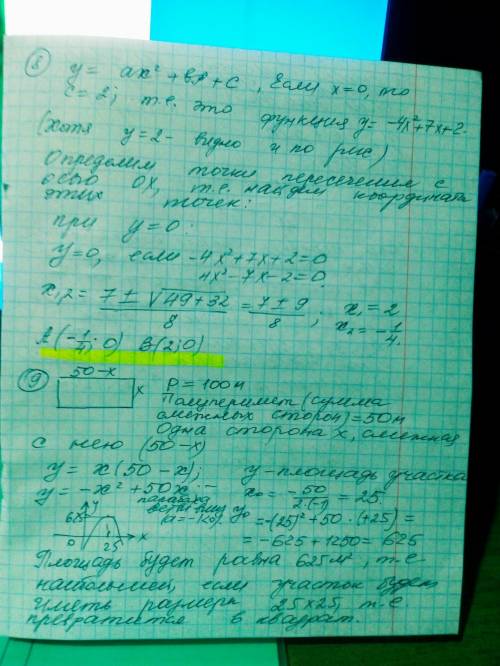 8) y = ax² + bx + c, Если x=0, то
c = 2; т.е. это функция y = -4x²+7x+2.
(хотя y=2 - видно и по рис)
Определим точки пересечения с
осью Ox, т.е. найдем координаты
этих точек:
при y=0:
y=0, если -4x²+7x+2=0
4x²-7x-2=0
x₁,₂ = (7 ± √(49+32))/8 = (7 ± 9)/8 ; x₁ = 2
x₂ = -1/4.
A(-1/4; 0) B(2; 0)
9) 50-x
x
P = 100м
Полупериметр (сумма
смежных сторон) = 50м
Одна сторона x, смежная
с нею (50-x)
y = x(50-x); y-площадь участка
y = -x²+50x - x₀ = -50/(2·(-1)) = 25
парабола
ветви вниз
(a=-1<0).
y₀ = -(25)²+50·(+25) =
= -625+1250 = 625
y
625
0
25
x
Площадь будет равна 625м², т.е.
наибольшей, если участок будет
иметь размеры 25x25, т.е.
превратится в квадрат.